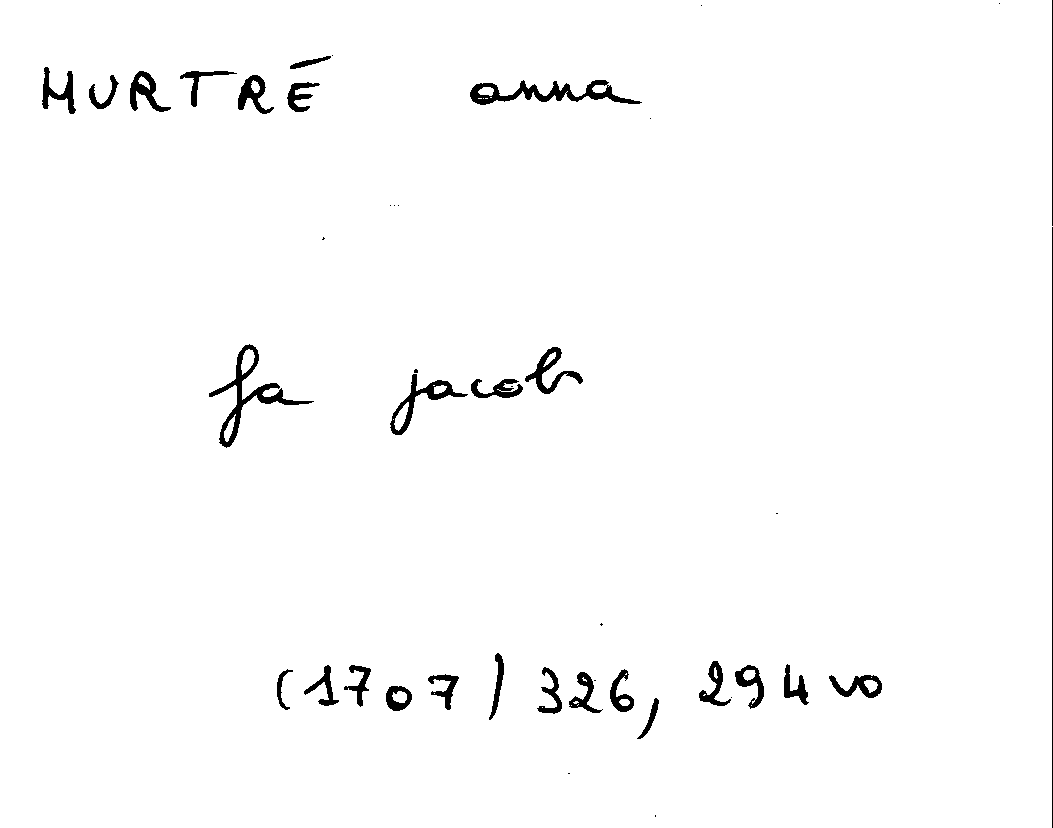 MURTRÉ anna
fa jacob
(1707) 326, 294 vo